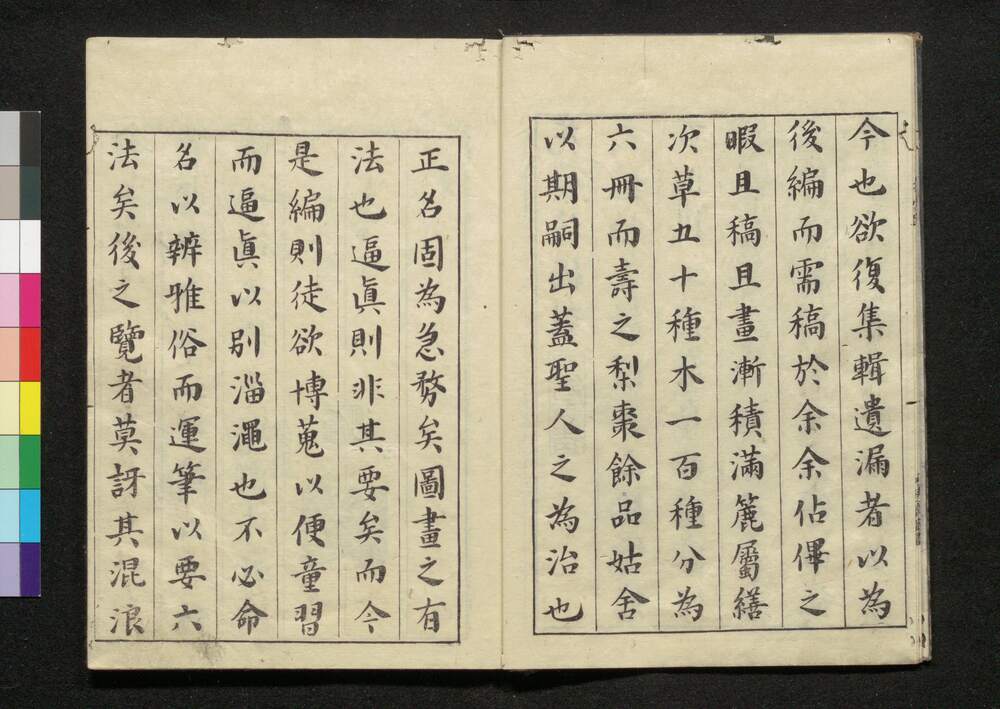 今也欲復集輯遺漏者以為
後編而需稿於余余佔俾之
暇且稿且畫漸積滿簏屬繕
次草五十種木一百種分為
六冊而壽之梨棗餘品姑舍
以期嗣出蓋聖人之為治也
正名固為急務矣圖畫之有
法也逼眞則非其要矣而今
是編則徒欲博蒐以便童習
而逼眞以別淄澠也不必命
名以辨雅俗而運筆以要六
法矣後之覽者莫訝其混浪